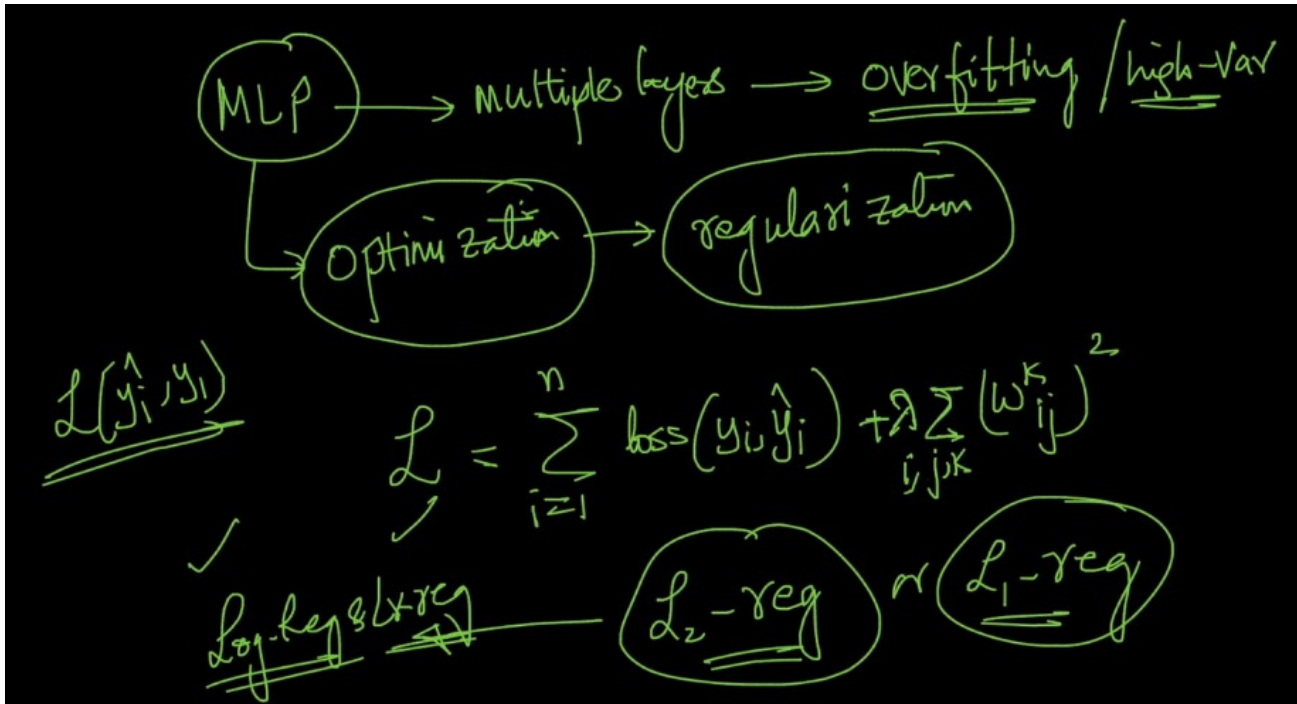 MLP → multiple layers → overfitting / high-var
optimization → regularization
L(ŷi, yi)
L = Σ_{i=1}^{n} loss(yi, ŷi) + λ Σ_{i,j,k} (w^k_{ij})^2
Log-Reg & L2-reg or L1-reg